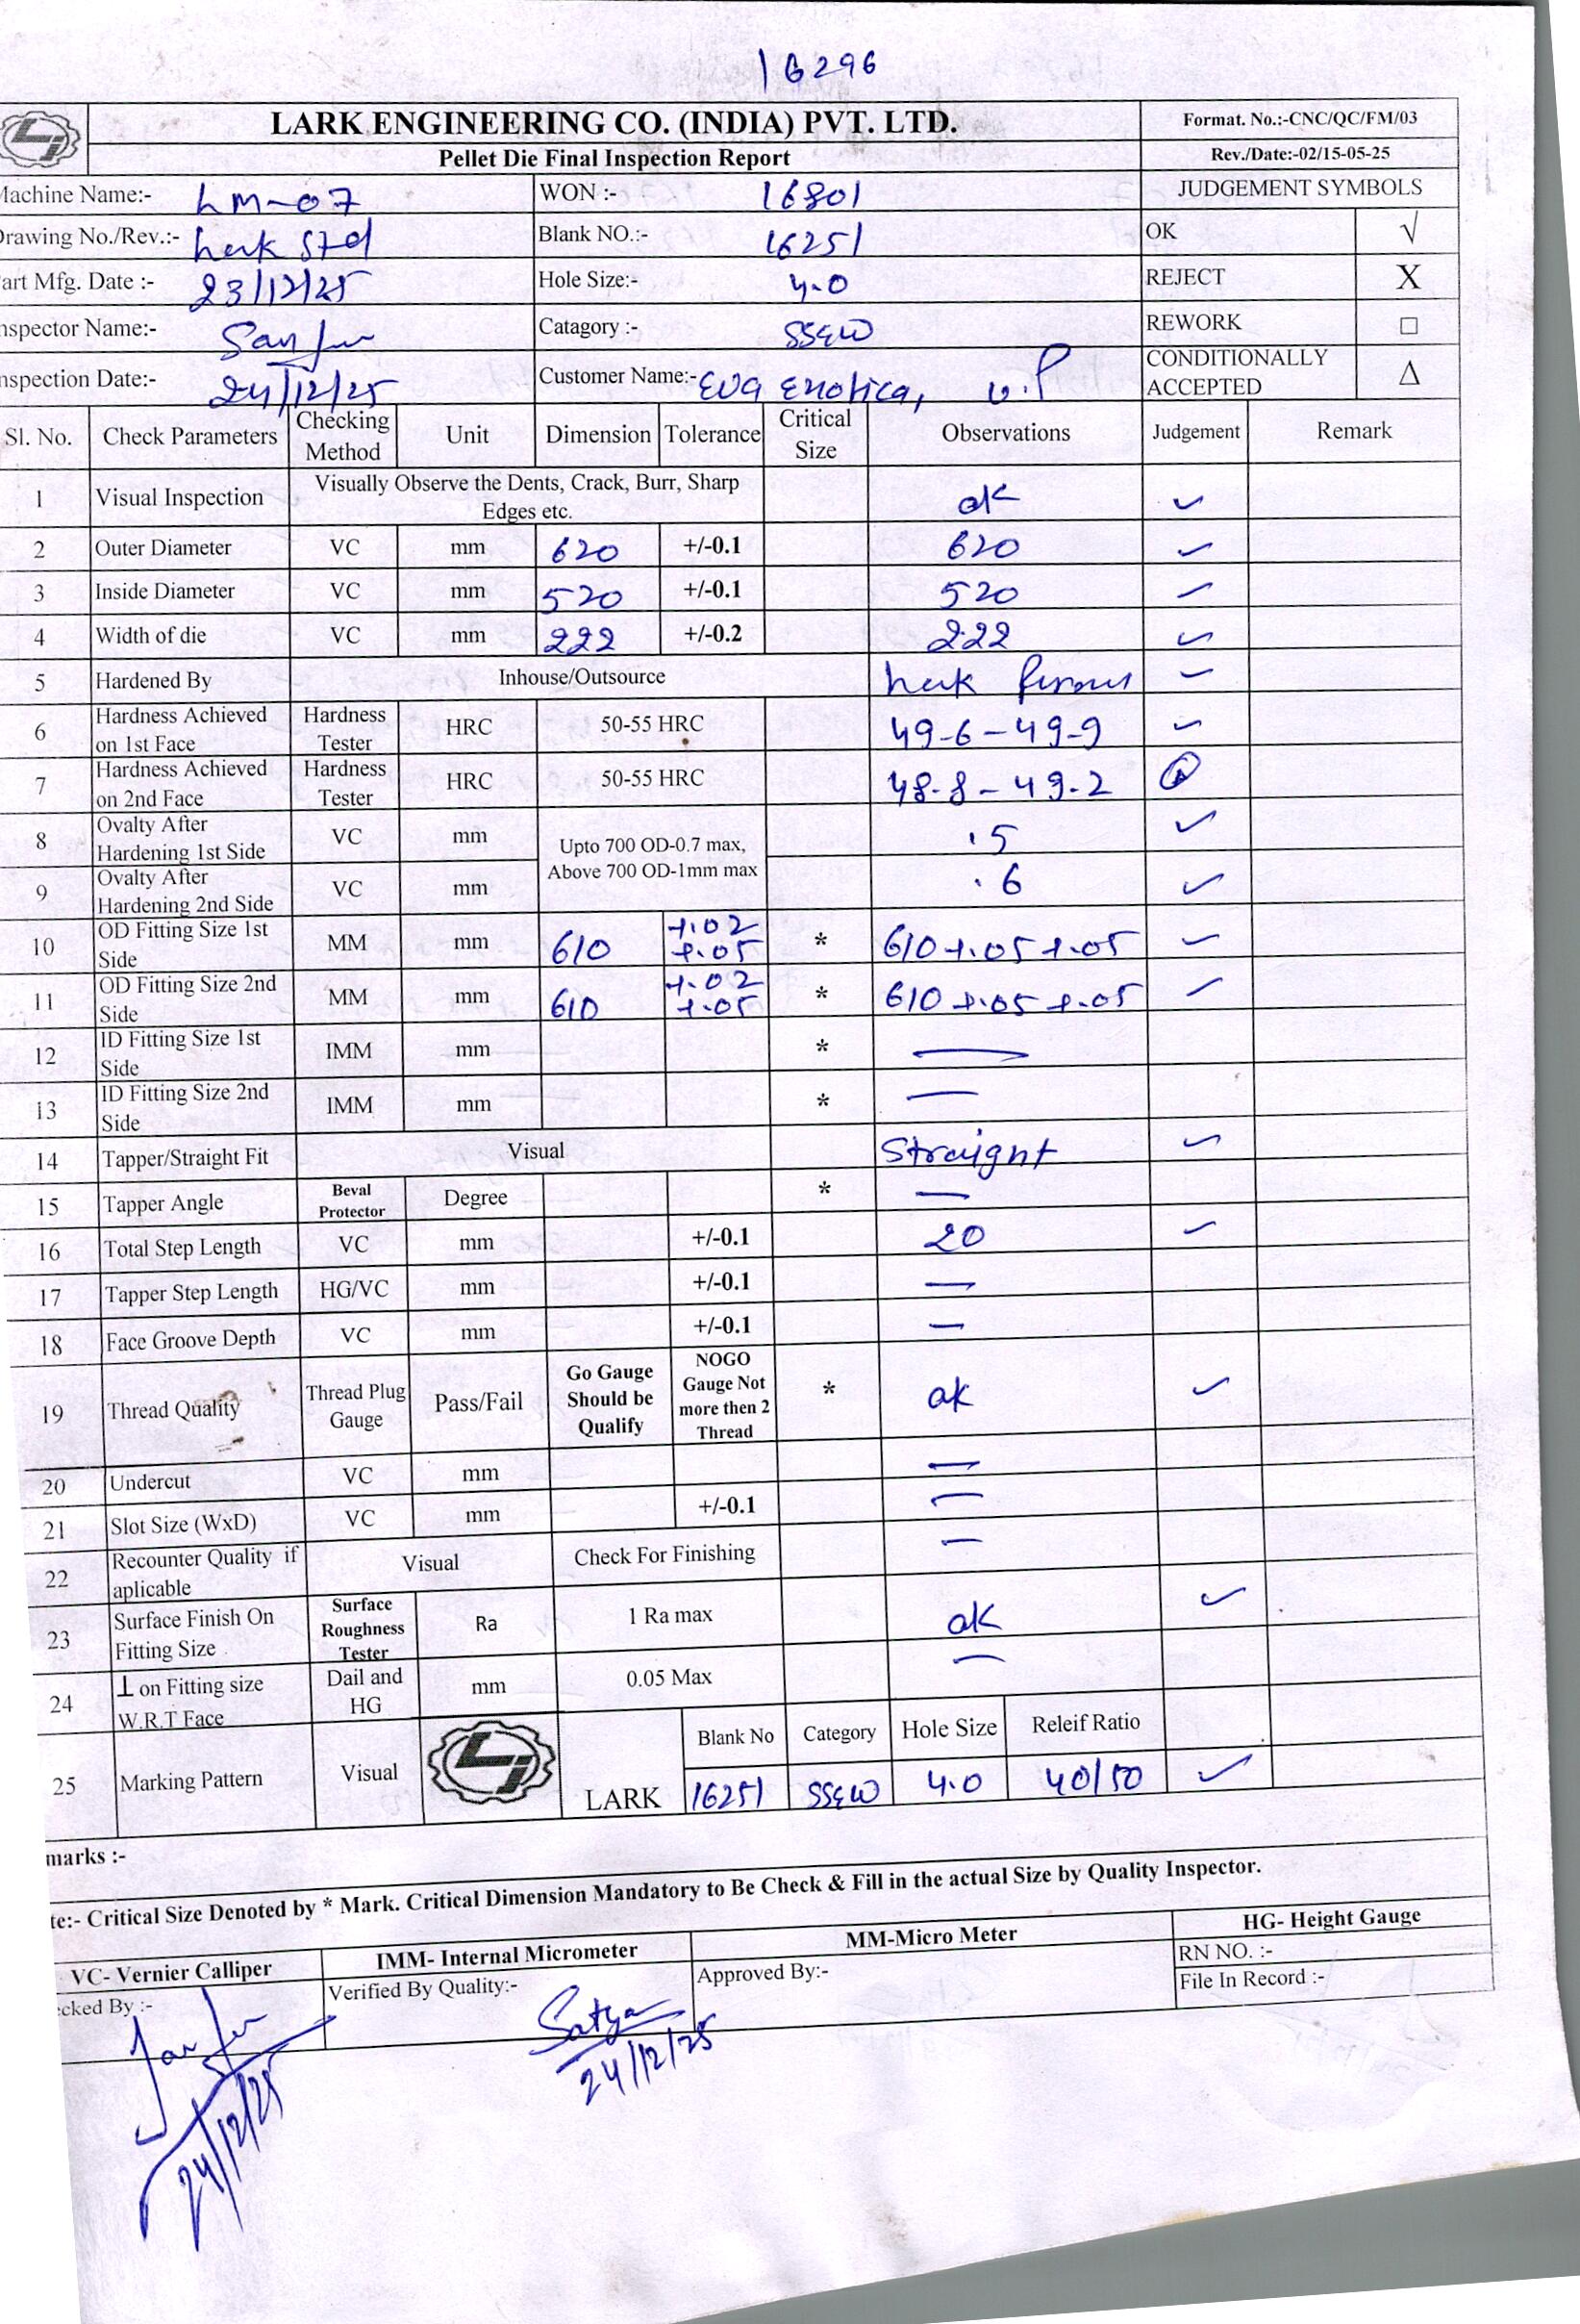 16296
LARK ENGINEERING CO. (INDIA) PVT. LTD.
Format. No.:-CNC/QC/FM/03
Pellet Die Final Inspection Report
Rev./Date:-02/15-05-25
Machine Name:- LM-07 WON :- 16801 JUDGEMENT SYMBOLS
Drawing No./Rev.:- Lark Std Blank NO.:- 16251 OK √
art Mfg. Date :- 23/12/25 Hole Size:- 4.0 REJECT X
nspector Name:- Catagory :- SS&W REWORK □
nspection Date:- 24/12/25 Customer Name:- Eva Exotica, U.P CONDITIONALLY ACCEPTED Δ
Sl. No. Check Parameters Checking Method Unit Dimension Tolerance Critical Size Observations Judgement Remark
1 Visual Inspection Visually Observe the Dents, Crack, Burr, Sharp Edges etc. ok ✓
2 Outer Diameter VC mm 620 +/-0.1 620 ✓
3 Inside Diameter VC mm 520 +/-0.1 520 ✓
4 Width of die VC mm 222 +/-0.2 222 ✓
5 Hardened By Inhouse/Outsource Lark ✓
6 Hardness Achieved on 1st Face Hardness Tester HRC 50-55 HRC 49-6-49-9 ✓
7 Hardness Achieved on 2nd Face Hardness Tester HRC 50-55 HRC 48-8-49-2
8 Ovalty After Hardening 1st Side VC mm Upto 700 OD-0.7 max, Above 700 OD-1mm max .5 ✓
9 Ovalty After Hardening 2nd Side VC mm .6 ✓
10 OD Fitting Size 1st Side MM mm 610 +.02 +.05 * 610 +.05 +.05 ✓
11 OD Fitting Size 2nd Side MM mm 610 +.02 +.05 * 610 +.05 +.05 ✓
12 ID Fitting Size 1st Side IMM mm * —
13 ID Fitting Size 2nd Side IMM mm * —
14 Tapper/Straight Fit Visual Straight ✓
15 Tapper Angle Beval Protector Degree * —
16 Total Step Length VC mm +/-0.1 20 ✓
17 Tapper Step Length HG/VC mm +/-0.1 —
18 Face Groove Depth VC mm +/-0.1 —
19 Thread Quality Thread Plug Gauge Pass/Fail Go Gauge Should be Qualify NOGO Gauge Not more then 2 Thread * ok ✓
20 Undercut VC mm —
21 Slot Size (WxD) VC mm +/-0.1 —
22 Recounter Quality if aplicable Visual Check For Finishing —
23 Surface Finish On Fitting Size Surface Roughness Tester Ra 1 Ra max ok ✓
24 ⊥ on Fitting size W.R.T Face Dail and HG mm 0.05 Max —
25 Marking Pattern Visual LARK Blank No Category Hole Size Releif Ratio
16251 SS&W 4.0 40/50 ✓
marks :-
te:- Critical Size Denoted by * Mark. Critical Dimension Mandatory to Be Check & Fill in the actual Size by Quality Inspector.
VC- Vernier Calliper IMM- Internal Micrometer MM-Micro Meter HG- Height Gauge
cked By :- Verified By Quality:- Approved By:- RN NO. :-
File In Record :-
Satya
24/12/25
24/12/25